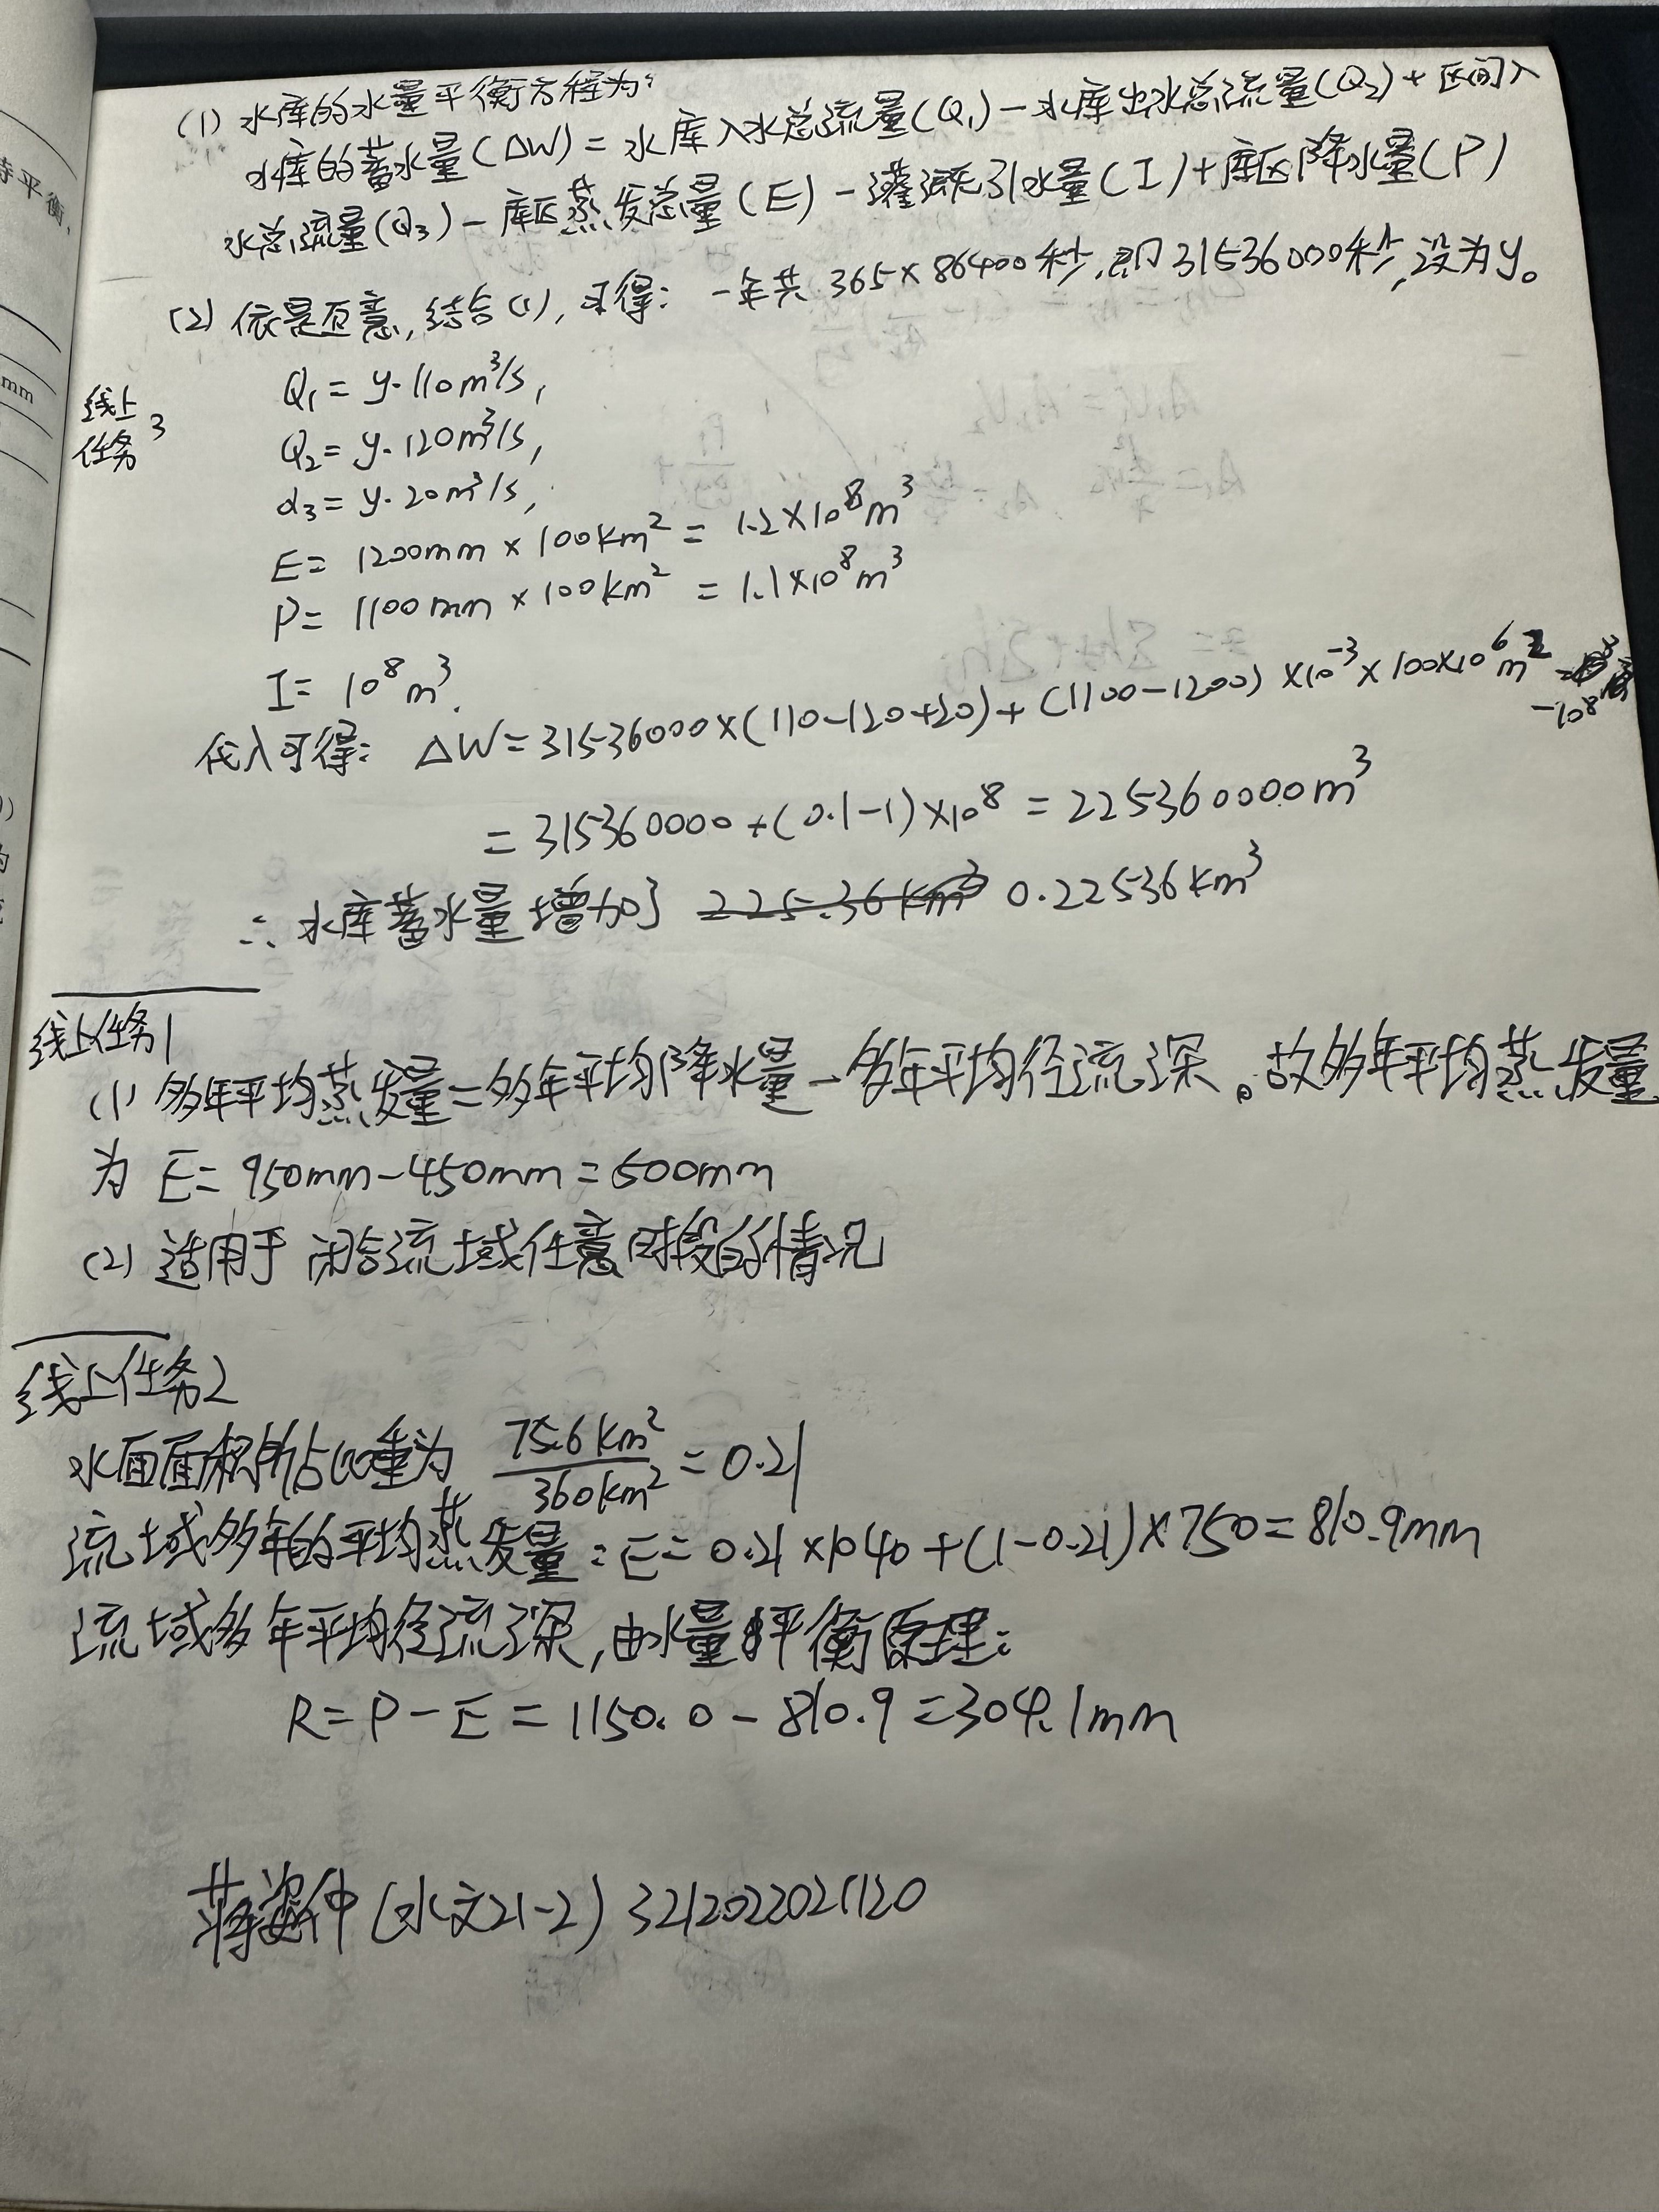 (1) 水库的水量平衡方程为:
水库的蓄水量(ΔW) = 水库入水总流量(Q₁) - 水库出水总流量(Q₂) + 区间入
水总流量(Q₃) - 库区蒸发总量(E) - 灌溉引水量(I) + 库区降水量(P)
(2) 依题意, 结合(1), 可得: 一年共 365×86400秒, 即31536000秒, 设为y。
线上
任务3
Q₁ = y·110m³/s,
Q₂ = y·120m³/s,
Q₃ = y·20m³/s,
E = 1200mm × 100km² = 1.2×10⁸m³
P = 1100mm × 100km² = 1.1×10⁸m³
I = 10⁸m³.
代入可得: ΔW = 31536000×(110-120+20)+(1100-1200)×10⁻³×100×10⁶m²
-10⁸
= 315360000+(0.1-1)×10⁸ = 225360000m³
∴ 水库蓄水量增加了 225.36km³ 0.22536km³
线上任务1
(1) 多年平均蒸发量=多年平均降水量-多年平均径流深。故多年平均蒸发量
为 E = 950mm-450mm = 500mm
(2) 适用于闭合流域任意时段的情况
线上任务2
水面面积所占比重为 75.6km²/360km² = 0.21
流域多年的平均蒸发量: E = 0.21×1040+(1-0.21)×750=810.9mm
流域多年平均径流深, 由水量平衡原理:
R = P - E = 1150.0 - 810.9 = 304.1mm
蒋 仲 (水文21-2) 3212022021120
mm
持平衡,